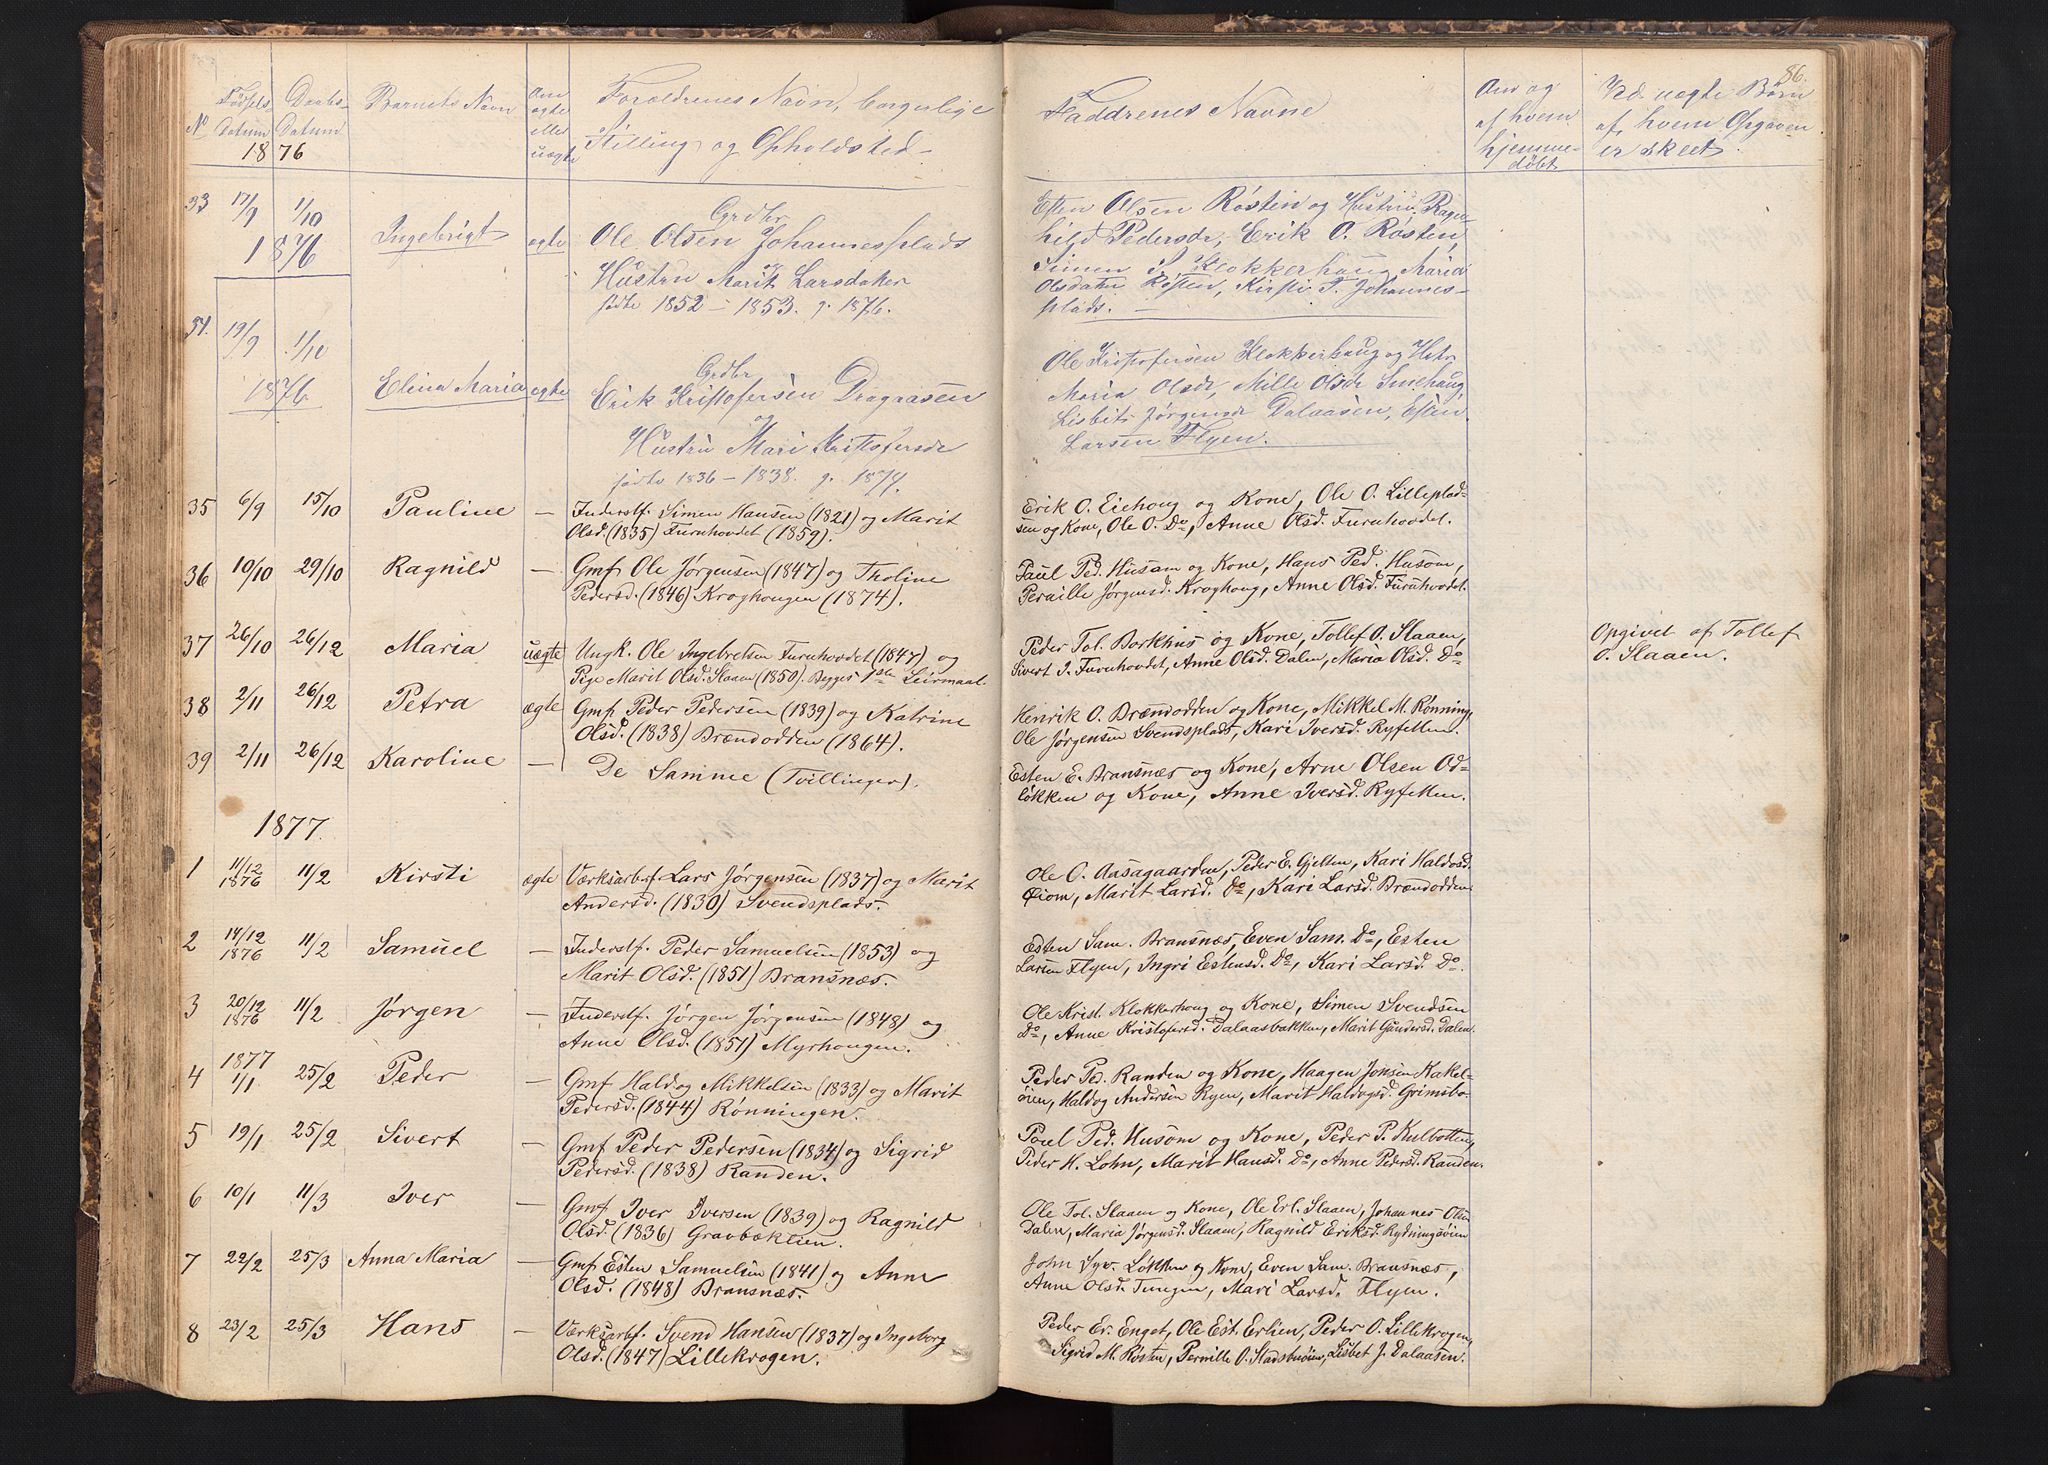 86.
No
Fødsels-
Datum
Daabs-
Datum
1876
Barnets Navn
Om
ægte
eller
uægte
Forældrenes Navn, borgerlige
Stilling og Opholdsted
Faddrenes Navne
Om og
af hvem
hjemme-
døbt
Ved uægte Børn
af hvem Opgaven
er skeet
33 17/9 1/10 Ingebrigt ægte
1876
Grdbr
Ole Olsen Johannesplads
og
Hustru Marit Larsdatter
fødte 1852 – 1853. g. 1876.
Esten Olsen Røsten og Hustru Ragn-
hild Pedersdr, Erik O. Røsten,
Simen S. Klokkerhaug, Maria
Olsdatter Røsten, Kirsti T. Johannes-
plads.
34. 19/9 1/10
1876 Elina Maria ægte
Grdbr
Erik Kristofersen Dragaasen
og
Hustru Mari Kristofersdr
fødte 1836 – 1838. g. 1874.
Ole Kristofersen Klokkerhaug og Hstr
Maria Olsdr, Mille Olsdr Smehaug,
Lisbit Jørgensdr Dalaasen, Esten
Larsen Flyen.
35 6/9 15/10 Pauline — Inderstf. Simen Hansen (1821) og Marit
Olsd. (1835) Furuhovdet (1859).
Erik O. Eichoug og Kone, Ole O. Lilleplad-
sen og Kone, Ole O. Do, Anne Olsd. Furuhovdet.
36 10/10 29/10 Ragnild — Gmf Ole Jørgensen (1847) og Tholine
Pedersd. (1846) Kroghougen (1874).
Paul Ped. Husom og Kone, Hans Ped. Husom,
Pernille Jørgensd. Kroghoug, Anne Olsd. Furuhovdet.
37 26/10 26/12 Maria uægte Ungk. Ole Ingebretsen Furuhovdet (1847) og
Pige Marit Olsd. Slaaen (1850). Begges 1ste Leiermaal.
Peder Tol. Borkhus og Kone, Tollef O. Slaaen,
Sivert I. Furuhovdet, Anne Olsd. Dalen, Maria Olsd. Do
Opgivet af Tollef
O. Slaaen.
38 2/11 26/12 Petra ægte Gmf Peder Pedersen (1839) og Katrine
Olsd. (1838) Brændodden (1864).
Henrik O. Brændodden og Kone, Mikkel M. Rønning,
Ole Jørgensen Svendsplads, Kari Iversd. Ryfetten.
39 2/11 26/12 Karoline — De Samme (Tvillinger).
Esten E. Bransnæs og Kone, Arne Olsen Od-
løkken og Kone, Anne Iversd. Ryfetten.
1877.
1 11/12 1876 11/2 Kirsti ægte Værksarbf. Lars Jørgensen (1837) og Marit
Andersd. (1830) Svendsplads.
Ole O. Aasagaarden, Peder E. Gjelten, Kari Haldosd.
Øiom, Marit Larsd. Do, Kari Larsd. Brændodden
2 14/12 1876 11/2 Samuel — Inderstf. Peder Samuelsen (1853) og
Marit Olsd. (1851) Bransnæs.
Esten Sam. Bransnæs, Even Sam. Do, Esten
Larsen Flyen, Ingri Estensd. Do, Kari Larsd. Do.
3 20/12 1876 11/2 Jørgen — Inderstf. Jørgen Jørgensen (1848) og
Anne Olsd. (1851) Myrhougen.
Ole Krist. Klokkerhoug og Kone, Simen Svendsen
Do, Anne Kristofersd. Dalaasbakken, Marit Gundersd. Dalen.
1877
4 1/1 25/2 Peder — Gmf Haldog Mikkelsen (1833) og Marit
Pedersd. (1844) Rønningen.
Peder Ped. Randen og Kone, Haagen Jonsen Kakel-
øien, Haldog Andersen Ryen, Marit Haldogsd. Grimsbo.
5 19/1 25/2 Sivert — Gmf Peder Pedersen (1834) og Sigrid
Pedersd. (1838) Randen.
Poul Ped. Husom og Kone, Peder P. Kulbotten,
Peder H. Lohn, Marit Hansd. Do, Anne Pedersd. Randen.
6 10/1 11/3 Iver — Gmf Iver Iversen (1839) og Ragnild
Olsd. (1836) Gravbæktien.
Ole Tol. Slaaen og Kone, Ole Erl. Slaaen, Johannes Olsen
Dalen, Maria Jørgensd. Slaaen, Ragnild Eriksd. Rydningsøien
7 22/2 25/3 Anna Maria — Gmf Esten Samuelsen (1841) og Anne
Olsd. (1848) Bransnæs.
John Syv. Løkken og Kone, Even Sam. Bransnæs,
Anne Olsd. Turegen, Mari Larsd. Flyen.
8 23/2 25/3 Hans — Værksarbf. Svend Hansen (1837) og Ingeborg
Olsd. (1847) Lillekrogen.
Peder Er. Enget, Ole Est. Erlien, Peder O. Lillekrogen,
Sigrid M. Røsten, Pernille O. Stadsbuøien, Lisbet J. Dalaasen.